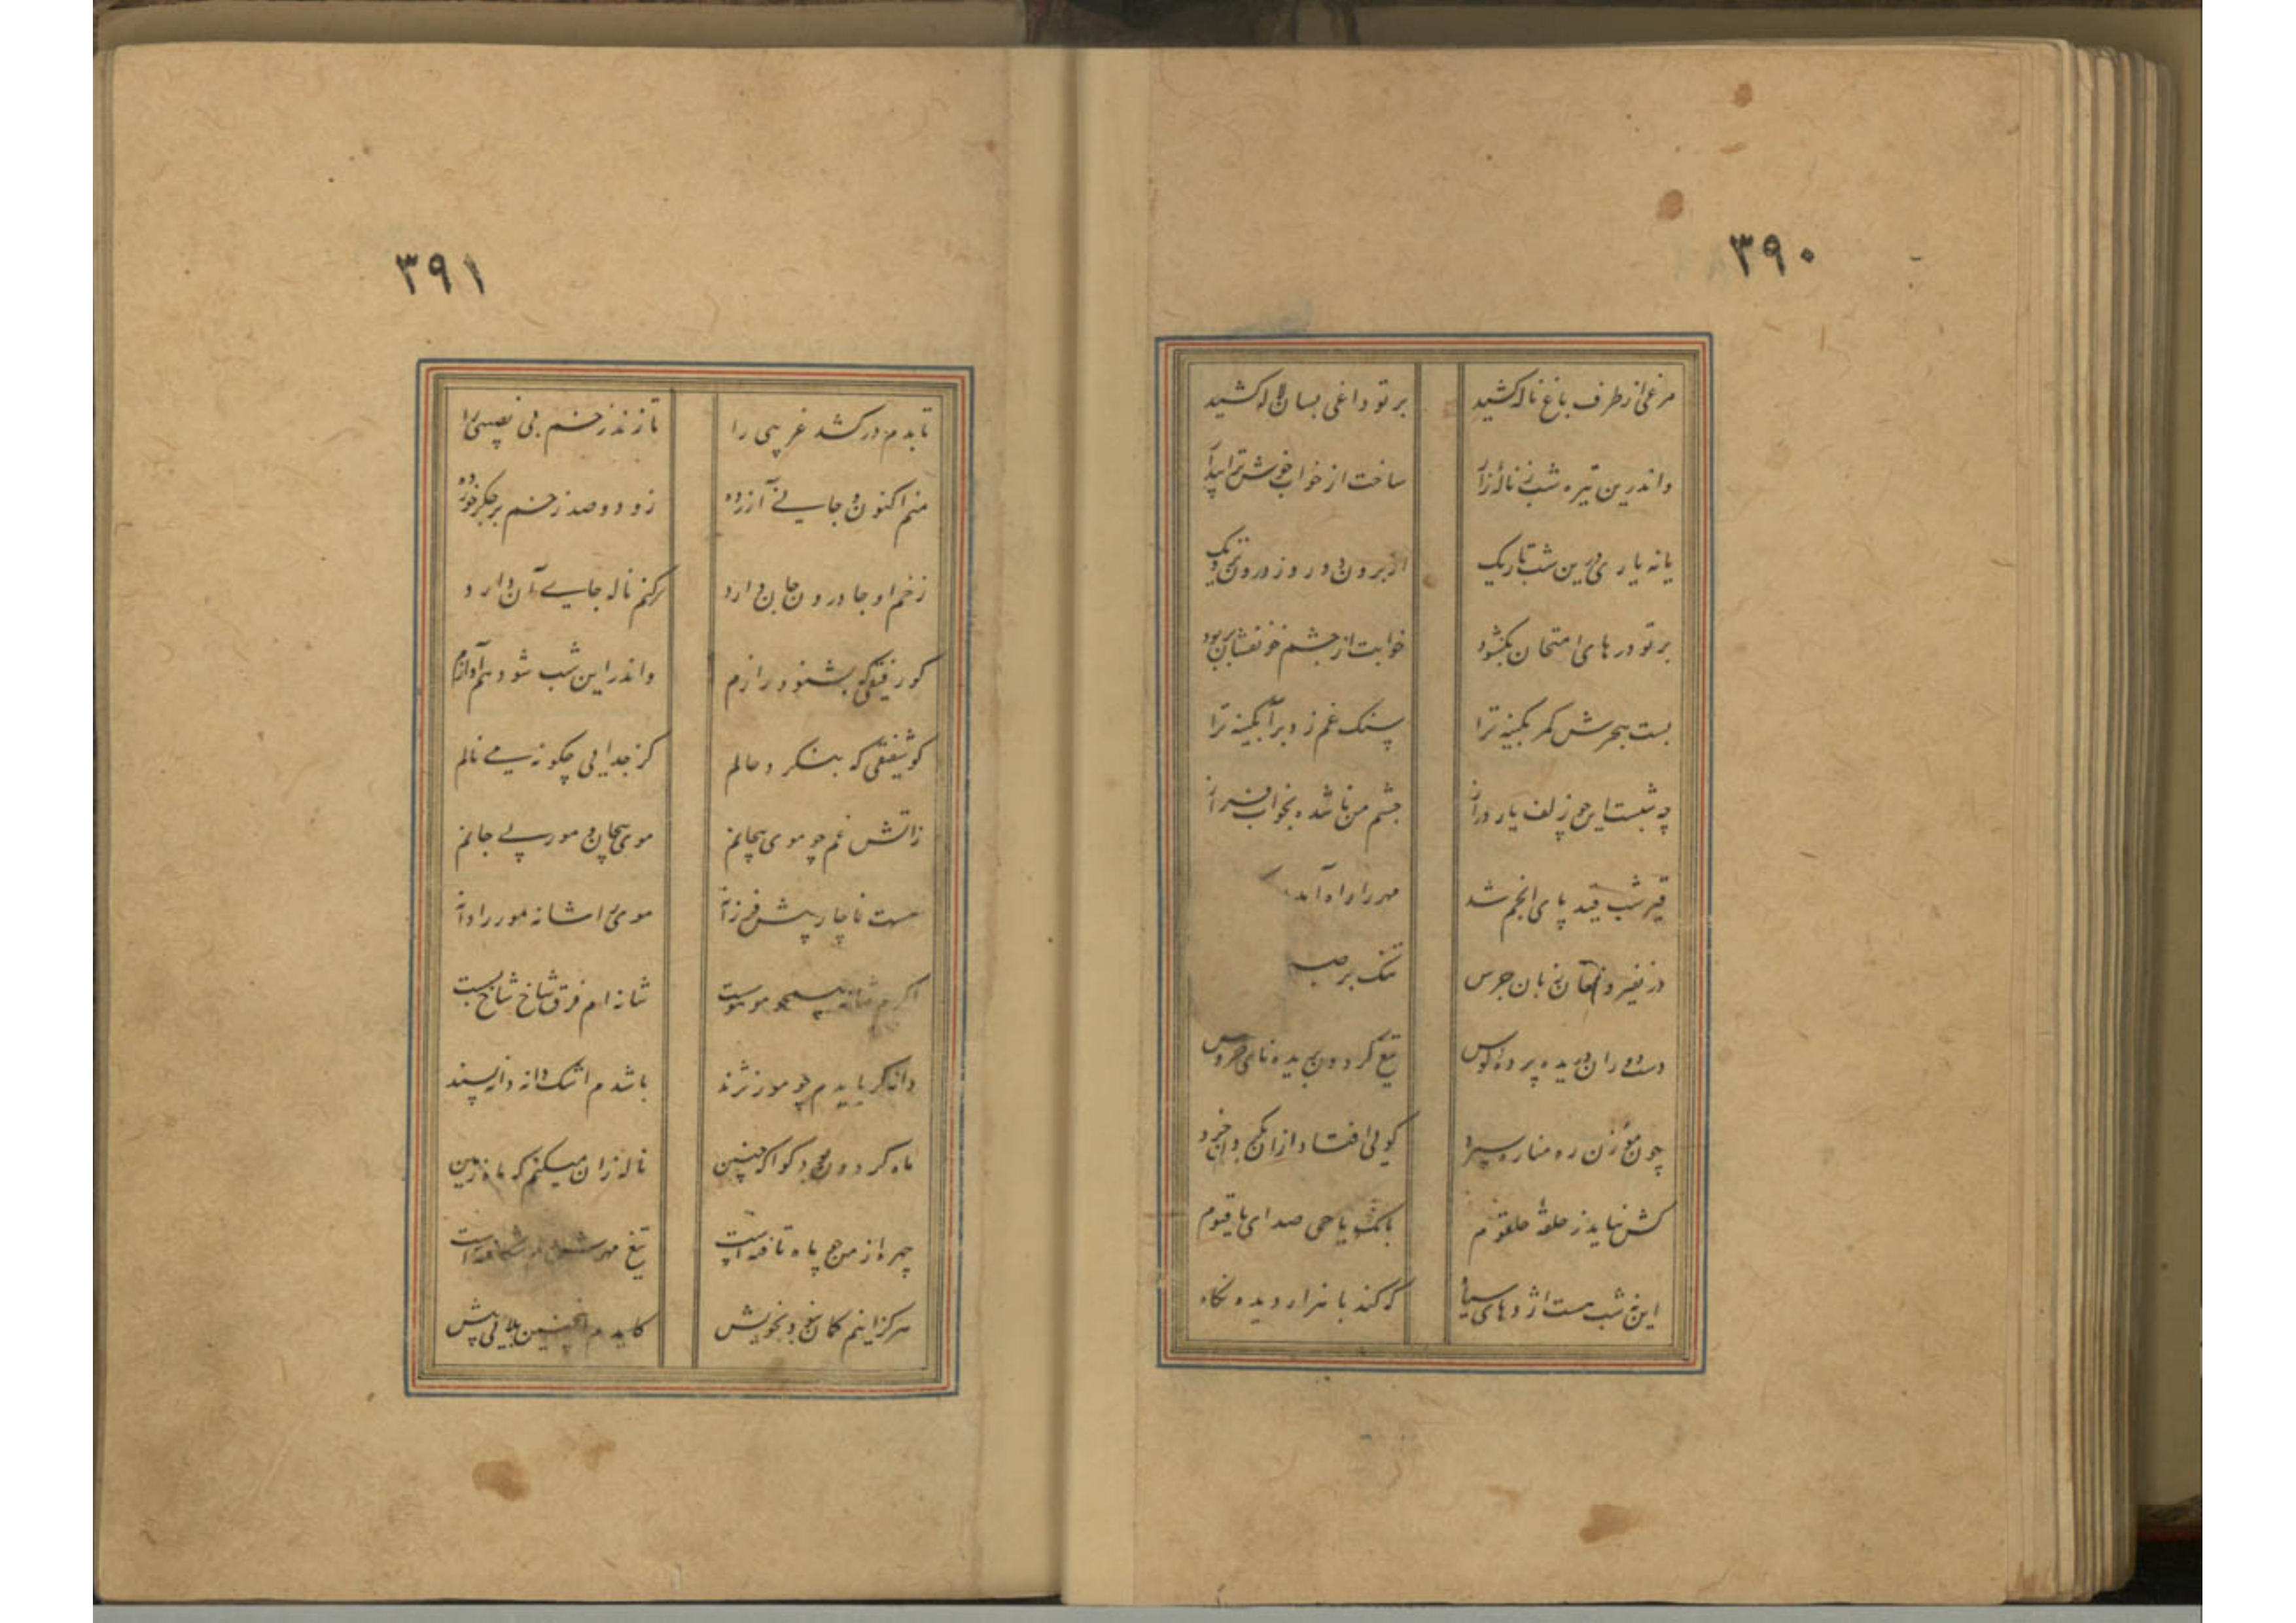 ٣٩٠
مرغی از طرف باغ ناله کشید
بر تو داغی بسان لاله کشید
واندرین تیره شب ز ناله زار
ساخت از خواب خوش ترا بیدار
یا نه یاری درین شب تاریک
از برون دور وز درون نزدیک
بر تو درهای امتحان بگشود
خوابت از چشم خونفشان بربود
بست هجرش کمر بکینه ترا
سنک غم زد بر آبکینه ترا
چه شبست این چو زلف یار دراز
چشم من ناشده بخواب فراز
قیر شب قید پای انجم شد
مهر را راه آمد
در نفیر و فغان زبان جرس
تنک بر
دست دوران دریده پرده کوس
تیغ کردون بریده نای خروس
چون مؤذن ره مناره سپرد
کولی افتاد از آن کج و آن خرد
کش نیاید ز حلقه حلقوم
بانک یا حی صدای یا قیوم
این نه شب هست اژدهای سیاه
که کند با هزار دیده نکاه
٣٩١
تا بدم درکشد غریبی را
تا زند زخم بی نصیبی را
منم اکنون و جانی آزرده
زو دو صد زخم بر جکر خورده
زخم او جا درون جان دارد
کر کنم ناله جای آن دارد
کو رفیقی که بشنود رازم
واندر این شب شود هم آوازم
کو شفیقی که بنکرد حالم
کز جدایی چکونه می نالم
ز آتش غم چو موی پیچانم
موی پیچان و مور بی جانم
هست ناچار پیش فرزانه
موی را شانه مور را دانه
اکرم شانه همچو موست
شانه ام فرق شاخ شاخ بست
دانه کر بایدم چو مور نژند
باشدم اشک دانه دانه پسند
ماه کردون چو دکوا که چنین
ناله زان میکنم که ماه زمین
چهره از من چو ماه تافته است
تیغ مهرش شکافته است
هرکز اینم کمان نبود بخویش
کایدم اینچنین بلایی پیش